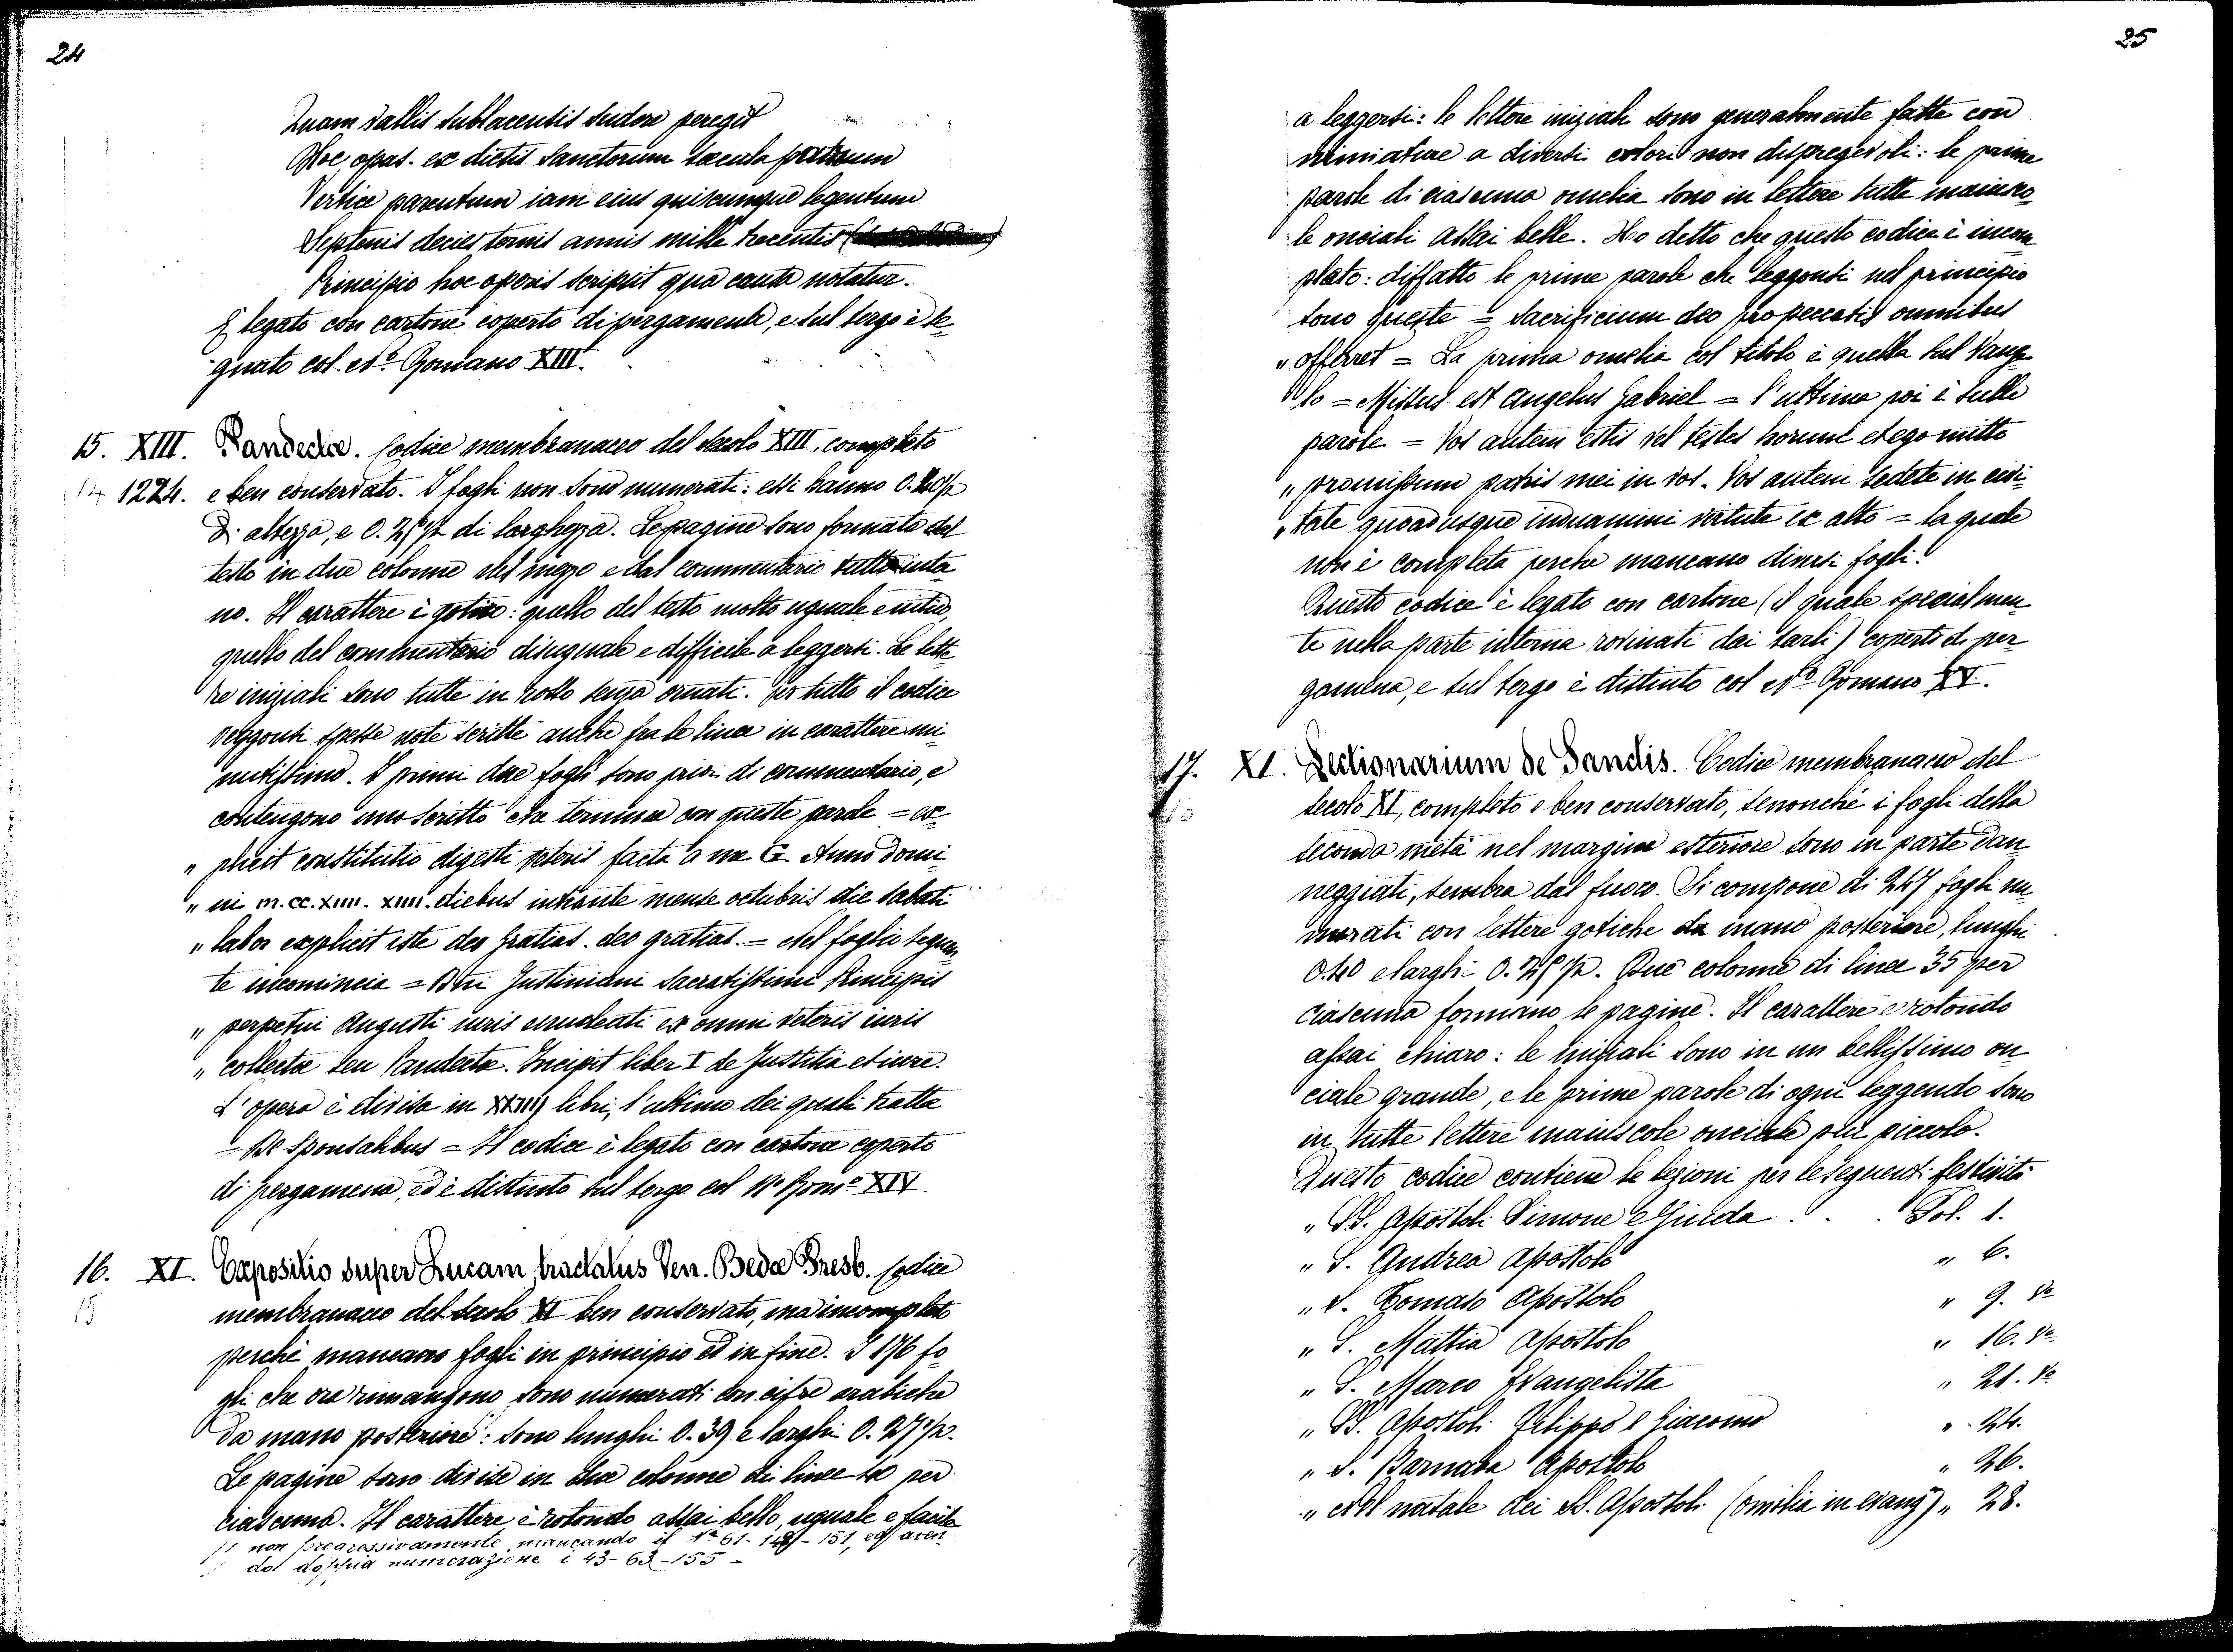 24
Quam vallis Sublacensis sudore peregit
Hoc opus. ex dictis Sanctorum saecula patrum
Vertice parentum iam eius quiscumque legentum
Septenis decies ternis annis mille trecentis
Principio hoc operis scripsit qua cauta notatur.
È legato con cartone coperto di pergamena, e sul tergo è se-
gnato col N.º Romano XIII.
15. XIII. Pandectæ. Codice membranaceo del secolo XIII, completo
14 1224. e ben conservato. I fogli non sono numerati: essi hanno 0.40½
di altezza, e 0.25½ di larghezza. Le pagine sono formate dal
testo in due colonne nel mezzo e dal commentario tutto intor-
no. Il carattere è gotico: quello del testo molto uguale e nitido,
quello del commentario disuguale e difficile a leggersi. Le lette-
re iniziali sono tutte in rosso senza ornati. Per tutto il codice
veggonsi spesse note scritte anche fra le linee in carattere mi-
nutissimo. I primi due fogli sono privi di commentario, e
contengono uno scritto che termina con queste parole = ex-
„ plicit constitutio digesti veteris facta a me G. Anno domi-
„ ni m. cc. xxiiii. xiiii. diebus intrante mense octubris die sabati
„ labor explicit iste deo gratias. deo gratias. = Nel foglio seguen-
te incomincia = Dni Justiniani Sacratissimi Principis
„ perpetui Augusti iuris enucleati ex omni veteris iuris
„ collecta seu Pandecta. Incipit liber I de Justitia et iure.
L'opera è divisa in XXIIII libri, l'ultimo dei quali tratta
= De Sponsalibus = Il codice è legato con cartone coperto
di pergamena, ed è distinto sul tergo col Nº Romº XIV.
16. XI. Expositio super Lucam, tractatus Ven. Bedæ Presb. Codice
15 membranaceo del secolo XI ben conservato, ma incompleto
perchè mancano fogli in principio ed in fine. I 176 fo-
gli che ora rimangono sono numerati con cifre arabiche
da mano posteriore: sono lunghi 0.39 e larghi 0.27½.
Le pagine sono divise in due colonne di linee 40 per
ciascuna. Il carattere è rotondo assai bello, uguale e facile
non progressivamente, mancando il Nº 61-148-151, ed aven-
do doppia numerazione i 43-63-155 -
25
a leggersi: le lettere iniziali sono generalmente fatte con
miniature a diversi colori non dispregevoli: le prime
parole di ciascuna omelia sono in lettere tutte maiusco-
le onciali assai belle. Ho detto che questo codice è incom-
pleto: diffatto le prime parole che leggonsi nel principio
sono queste = sacrificium deo pro peccatis omnibus
„ offerret = La prima omelia col titolo è quella sul Vange-
lo = Missus est Angelus Gabriel = l'ultima poi è sulle
parole = Vos autem estis vel testes horum et ego mitto
„ promissum patris mei in vos. Vos autem sedete in civi-
„ tate quoadusque induamini virtute ex alto = la quale
non è completa perchè mancano diversi fogli.
Questo codice è legato con cartone (il quale specialmen-
te nella parte interna rovinati dai tarli) coperto di per-
gamena, e sul tergo è distinto col Nº Romano XV.
17. XI. Lectionarium de Sanctis. Codice membranaceo del
16 secolo XI, completo e ben conservato, senonchè i fogli della
seconda metà nel margine esteriore sono in parte dan-
neggiati, sembra dal fuoco. Si compone di 247 fogli nu-
merati con lettere gotiche da mano posteriore, lunghi
0.40 e larghi 0.25½. Due colonne di linee 35 per
ciascuna formano le pagine. Il carattere è rotondo
assai chiaro: le iniziali sono in un bellissimo on-
ciale grande, e le prime parole di ogni leggenda sono
in tutte lettere maiuscole onciali più piccole.
Questo codice contiene le lezioni per le seguenti festività
„ SS. Apostoli Simone e Giuda . . . Fol. 1.
„ S. Andrea Apostolo „ 6.
„ S. Tomaso Apostolo „ 9. vº
„ S. Mattia Apostolo „ 16. vº
„ S. Marco Evangelista „ 21. vº
„ SS. Apostoli Filippo e Giacomo „ 24.
„ S. Barnaba Apostolo „ 26.
„ Nel natale dei SS. Apostoli (omilia in evang) „ 28.